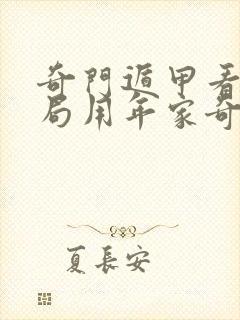 奇門遁甲看
局用年家奇
夏長安